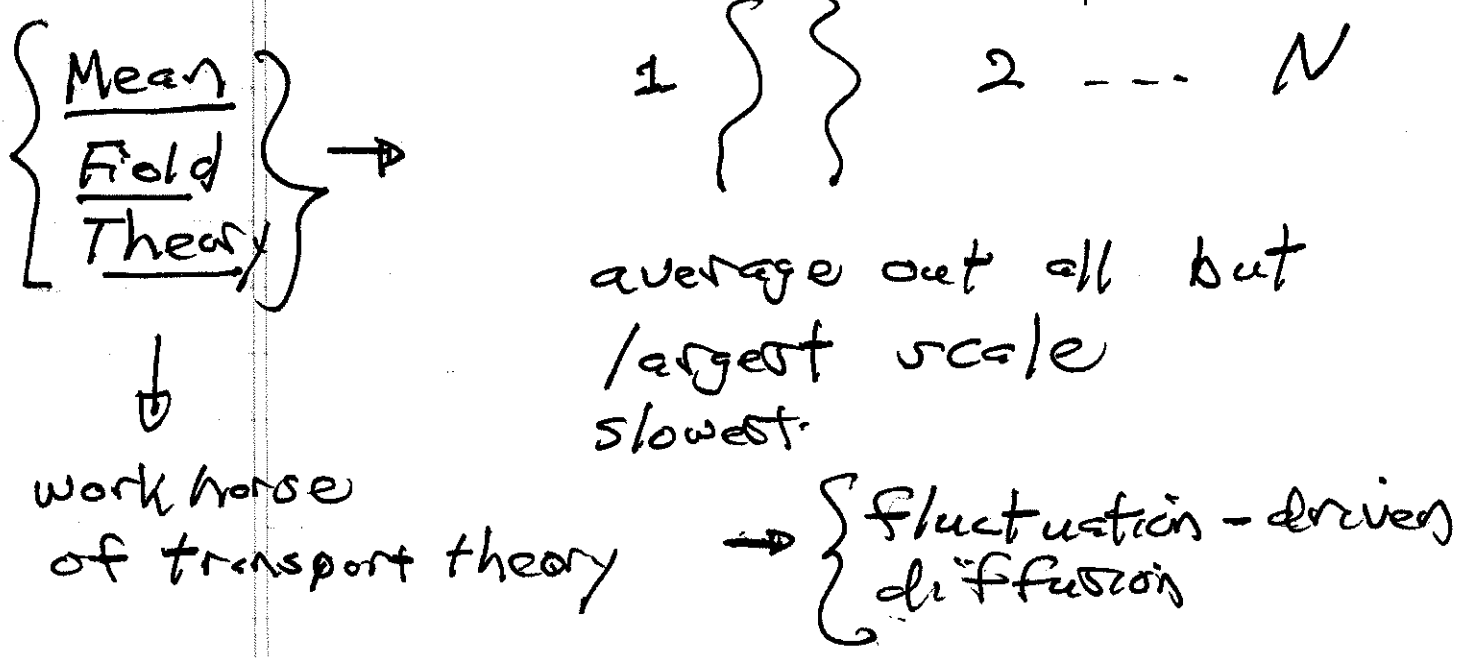 Mean
Field
Theory
→
1 } } 2 --- N
average out all but
largest scale
slowest.
↓
workhorse
of transport theory
→ { fluctuation-driven
diffusion